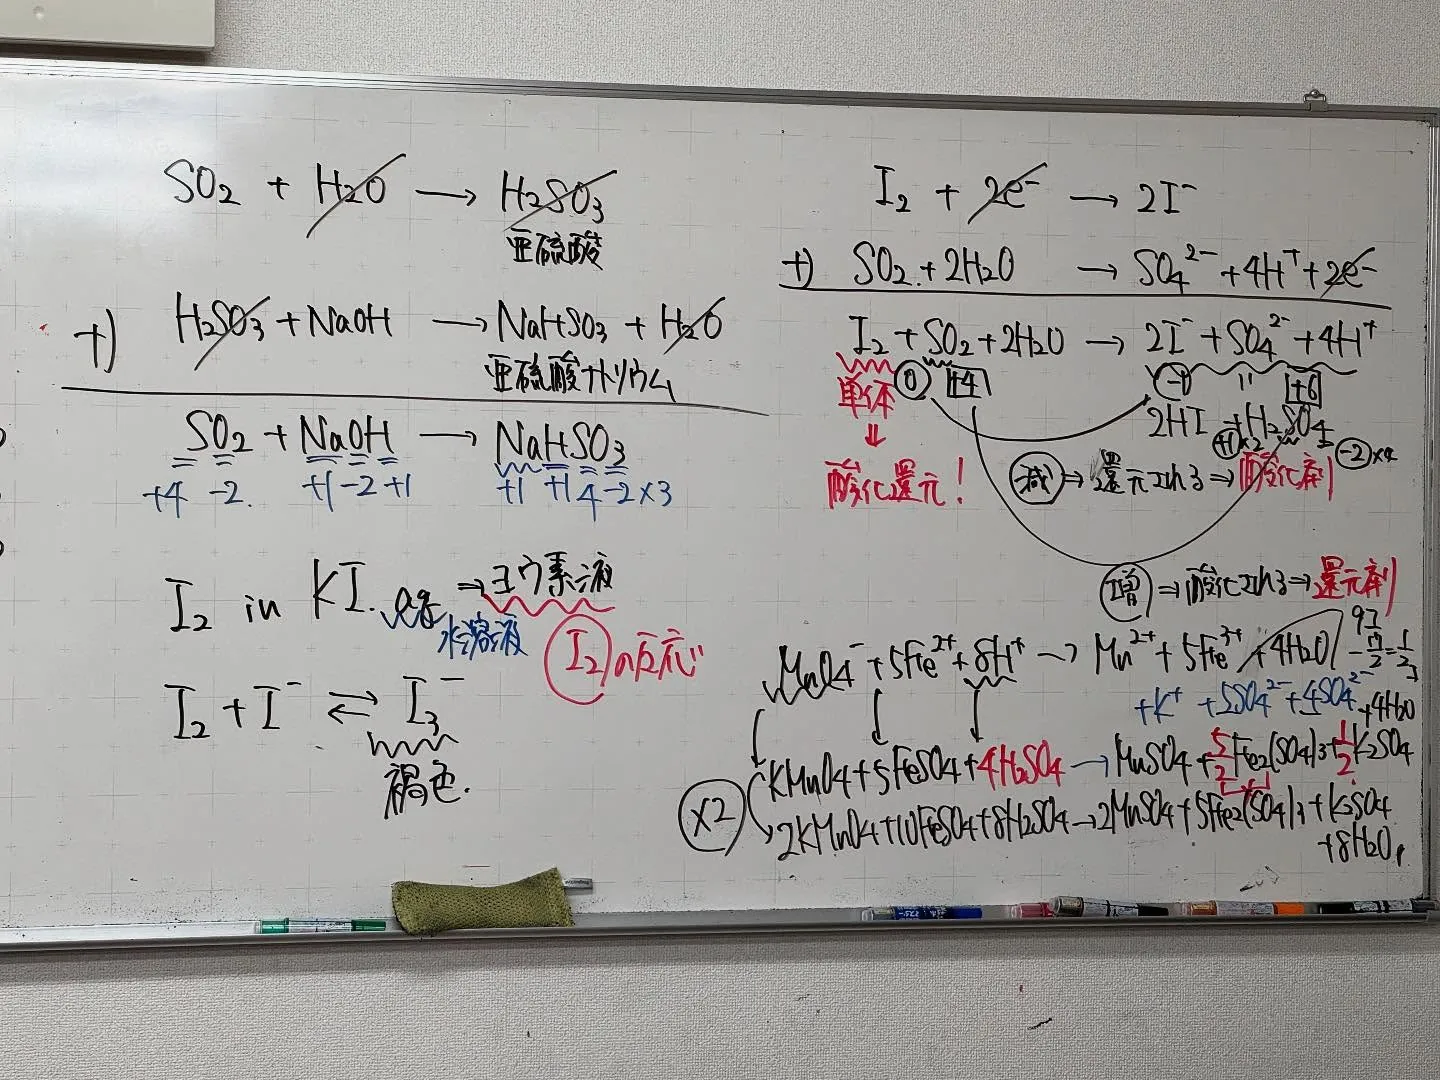 SO₂ + H₂O → H₂SO₃
亜硫酸
+) H₂SO₃ + NaOH → NaHSO₃ + H₂O
亜硫酸ナトリウム
SO₂ + NaOH → NaHSO₃
+4 -2 +1 -2 +1 +1 +1 4 -2×3
I₂ in KI aq ⇒ ヨウ素液
水溶液
I₂の反応
I₂ + I⁻ ⇄ I₃⁻
褐色.
I₂ + 2e⁻ → 2I⁻
+) SO₂ + 2H₂O → SO₄²⁻ + 4H⁺ + 2e⁻
I₂ + SO₂ + 2H₂O → 2I⁻ + SO₄²⁻ + 4H⁺
0 +4 -1 +6
単体
⇓
酸化還元!
2HI + H₂SO₄
+1×2 -2×4
減 ⇒ 還元される ⇒ 酸化剤
増 ⇒ 酸化される ⇒ 還元剤
MnO₄⁻ + 5Fe²⁺ + 8H⁺ → Mn²⁺ + 5Fe³⁺ + 4H₂O
+K⁺ + 5SO₄²⁻ + 4SO₄²⁻
+4H₂O
KMnO₄ + 5FeSO₄ + 4H₂SO₄ → MnSO₄ + 5/2 Fe₂(SO₄)₃ + 1/2 K₂SO₄
×2
2KMnO₄ + 10FeSO₄ + 8H₂SO₄ → 2MnSO₄ + 5Fe₂(SO₄)₃ + K₂SO₄
+8H₂O